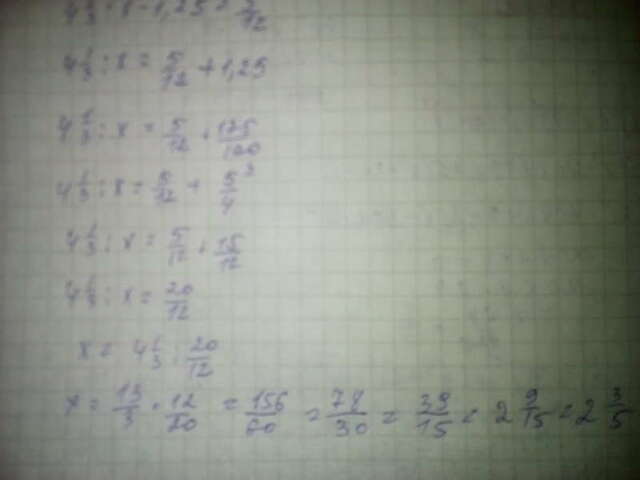 4 1/3 : x - 1,25 = 5/12
4 1/3 : x = 5/12 + 1,25
4 1/3 : x = 5/12 + 125/100
4 1/3 : x = 5/12 + 5/4 ³
4 1/3 : x = 5/12 + 15/12
4 1/3 : x = 20/12
x = 4 1/3 : 20/12
x = 13/3 · 12/20 = 156/60 = 78/30 = 39/15 = 2 9/15 = 2 3/5